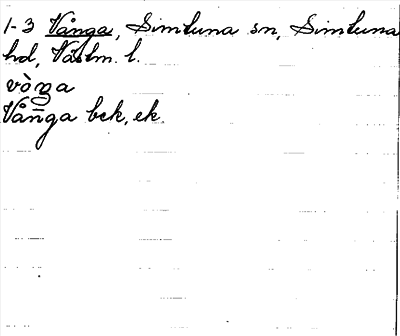 1-3 Vånga, Simtuna sn, Simtuna
hd, Västm. l.
vòŋa
Vånga bek, ek.